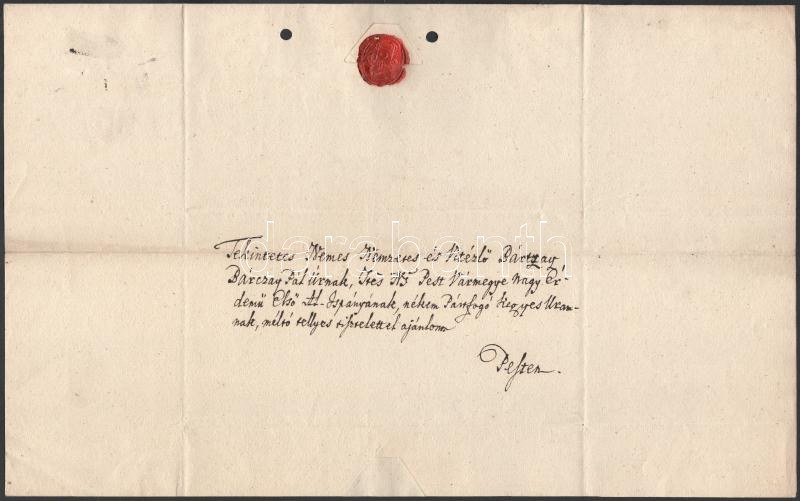 Tekintetes Nemes Nemzetes és Vitézlő Bártzay
Bárczay Pál Úrnak, Ttes Ns Pest Vármegye Nagy Ér-
demű Első Al-Ispányának, nékem Pártfogó Kegyes Uram-
nak, méltó tellyes tisztelettel ajánlom
Pesten.
darabanth